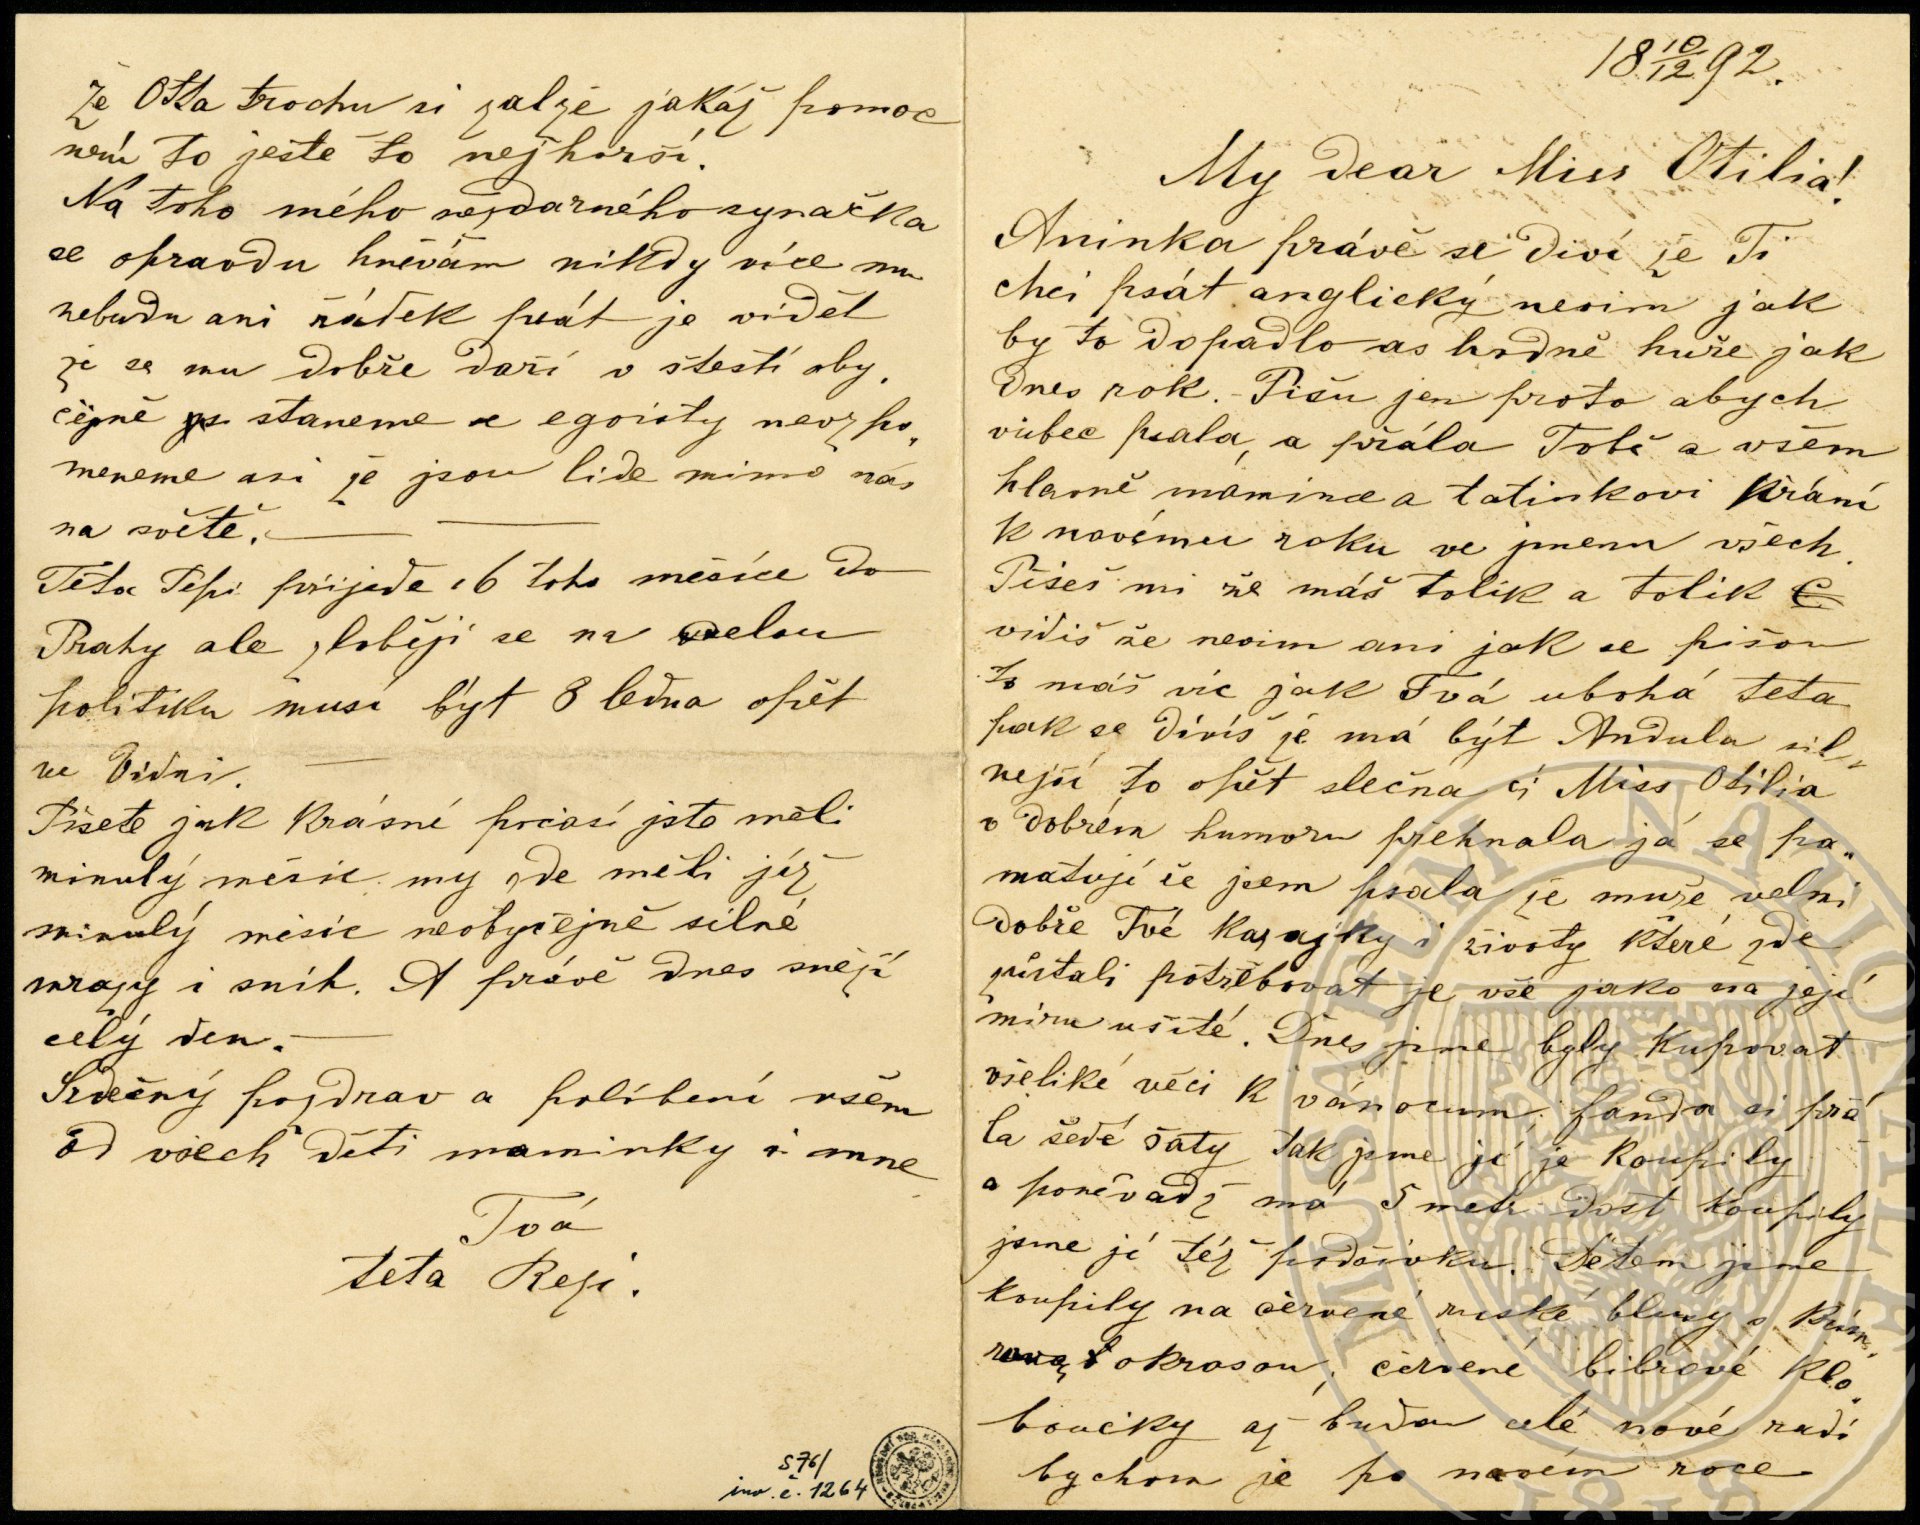 18 10/12 92.
My dear Miss Otilia!
Aninka právě se diví že Ti
chci psát anglický nevim jak
by to dopadlo as hodně huře jak
dnes rok. - Pišu jen proto abych
vůbec psala, a přála Tobě a všem
hlavně mamince a tatinkovi přání
k novému roku ve jmenu všech.
Píšeš mi že máš tolik a tolik €
vidiš že nevim ani jak se pišou
to máš víc jak Tvá ubohá teta
pak se diviš že má být Andula sil„
nejší to opět slečna či Miss Otilia
v dobrém humoru přehnala já se pa„
matuji že jsem psala že muže velmi
dobře Tvé kazajky i životy které zde
zůstali potřebovat je vše jako na její
míru ušité. Dnes jsme byly kupovat
všeliké věci k vánocum, fanda si přá
la šedé šaty tak jsme jí je koupily
a poněvadž má 5 metr dost koupily
jsme jí též podšívku. Dětem jsme
koupily na červené ruské bluzy s
okrasou, červené bibrové klo„
boučky až budou celé nové radi
bychom je po novém roce
že Otta trochu si zalže jakáž pomoc
není to ještě to nejhorší.
Na toho mého nezdarného synačka
se opravdu hněvám nikdy více mu
nebudu ani řádek psát je vidět
že se mu dobře daří v štestí oby„
čejně staneme se egoisty nevzpo„
meneme ani že jsou lide mimo nás
na světě.
Teta Pepi přijede 16 toho měsíce do
Prahy ale zlobějí se na velou
politiku musí být 8 ledna opět
ve Vidni.
Píšete jak krásné počasí jste měli
minulý měsic my zde měli již
minulý měsic neobyčejně silné
mrazy i snih. A právě dnes sněží
celý den.
Srdečný pozdrav a políbení všem
od všech děti maminky i mne
Tvá
teta Rezi.
S 76/
inv. č. 1264
MUSAEUM NATIONALE
1818